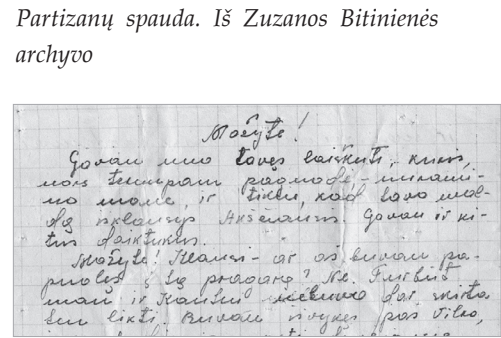 Partizanų spauda. Iš Zuzanos Bitinienės
archyvo
Mažyte!
Gavau nuo tavęs laiškutį, kuris,
nors trumpam
no mane, ir tikiu, kad tavo mal-
dą išklausys Aukščiausis. Gavau ir ki-
tus daiktukus.
Mažyte! Klausi - ar aš buvau pa-
puolęs į tą pragarą? Ne. Turbūt
man ir Kauku nebuvo dar skirta
ten likti. Buvau išvykęs pas Vilko,